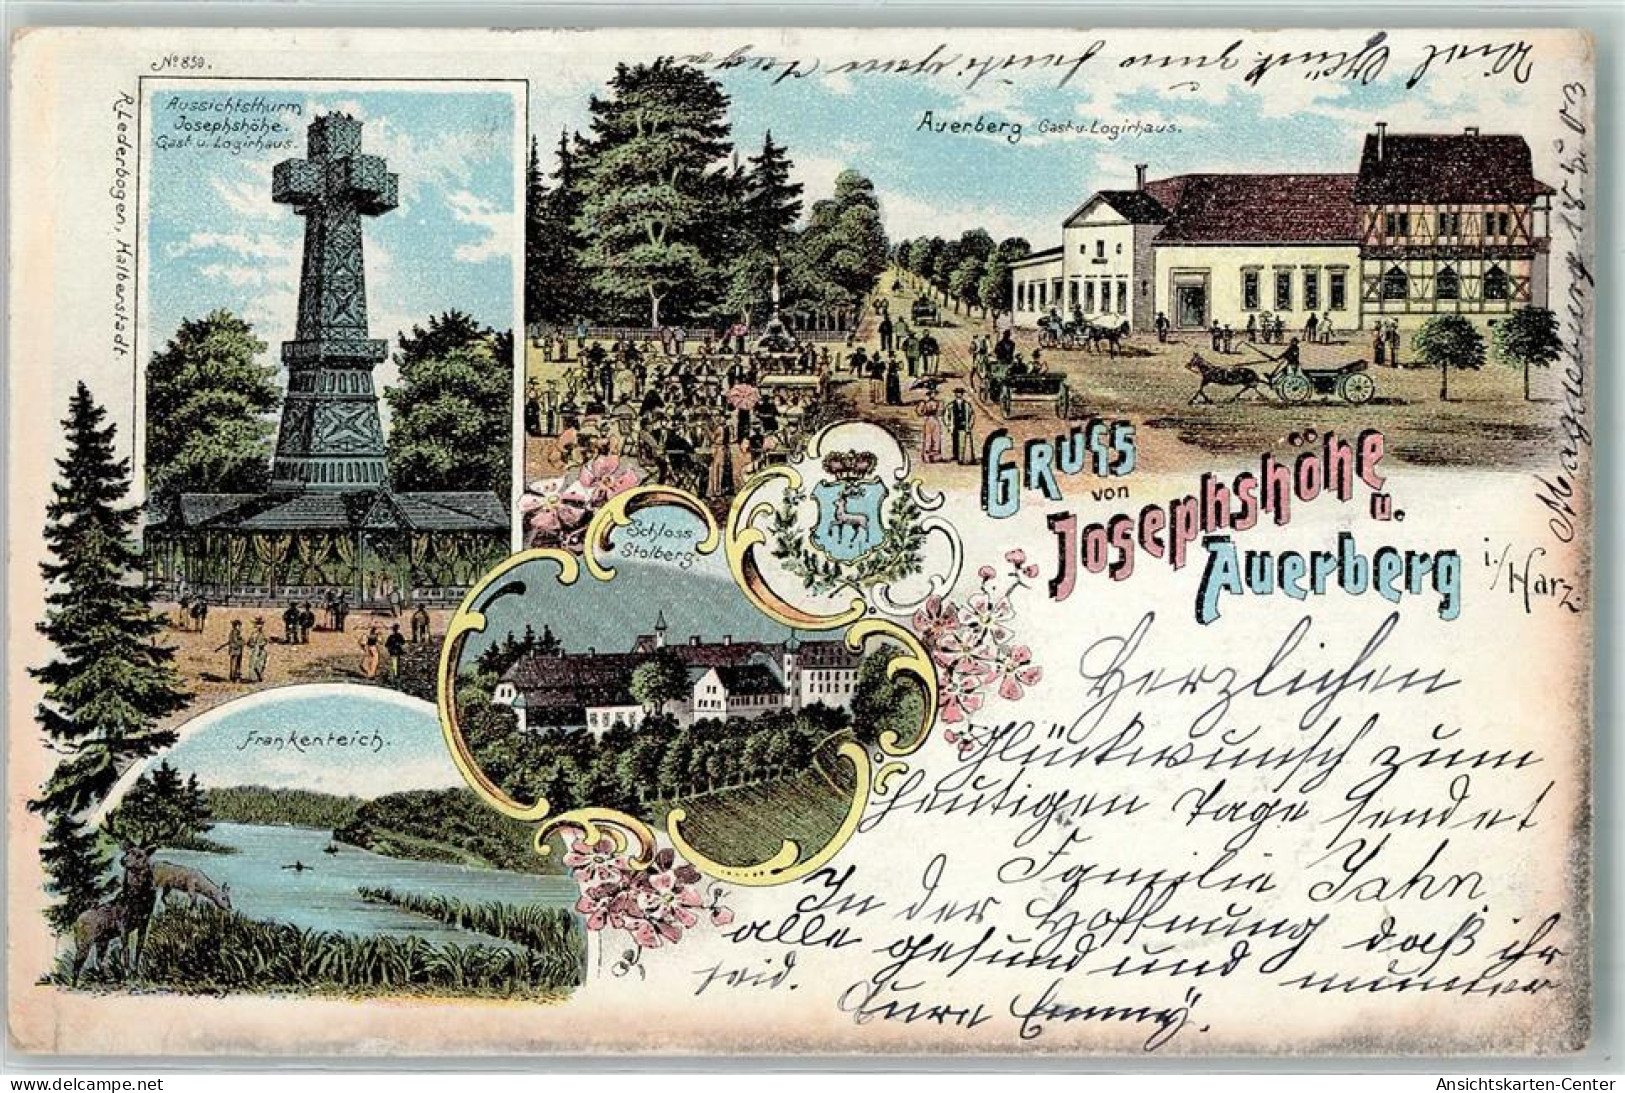 Nº 859.
R. Lederbogen, Halberstadt
Aussichtsthurm
Josephshöhe.
Gast u. Logirhaus.
Auerberg Gast-u. Logirhaus.
Schloss
Stolberg.
Frankenteich.
GRUSS
von
JOSEPHSHÖHE
u.
AUERBERG i./Harz.
Herzlichen
Glückwunsch zum
heutigen Tage sendet
Familie Jahn.
In der Hoffnung daß ihr
alle gesund und munter
seid.
Eure Emmy.
Magdeburg 18.5.03
Viel Glück zum
delcampe.net
Ansichtskarten-Center